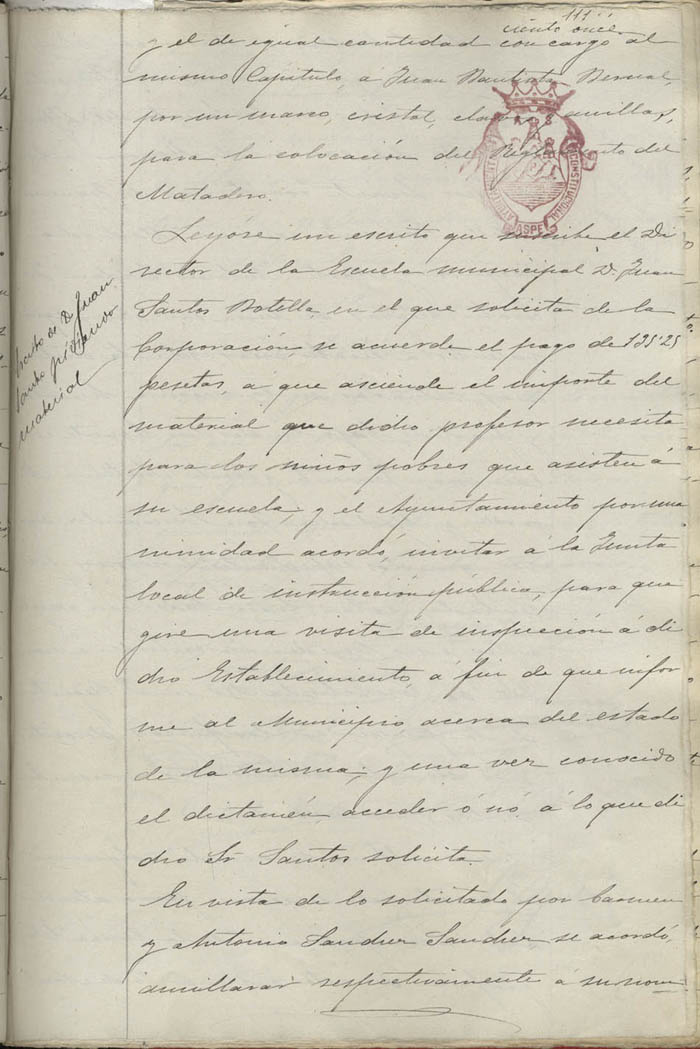 111
ciento once
y el de igual cantidad con cargo al
mismo Capítulo, á Juan Bautista Bernal,
por un marco, cristal, clavos, anillas,
para la colocación del Reglamento del
Matadero.
Leyóse un escrito que suscribe el Di
rector de la Escuela municipal D. Juan
Santos Botella, en el que solicita de la
Corporación, se acuerde el pago de 195'25
pesetas, á que asciende el importe del
material que dicho profesor necesita
para los niños pobres que asisten á
su escuela; y el Ayuntamiento por una
nimidad acordó, invitar á la Junta
local de instrucción pública, para que
gire una visita de inspección á di
cho Establecimiento, á fin de que infor
me al Municipio acerca del estado
de la misma; y una vez conocido
el dictamen, acceder ó nó á lo que di
cho Sr Santos solicita.
En vista de lo solicitado por Carmen
y Antonio Sanchez Sanchez se acordó,
amillarar respectivamente á su nom
Escrito de D. Juan
Santos pidiendo
material
AYUNTAMIENTO CONSTITUCIONAL
ASPE